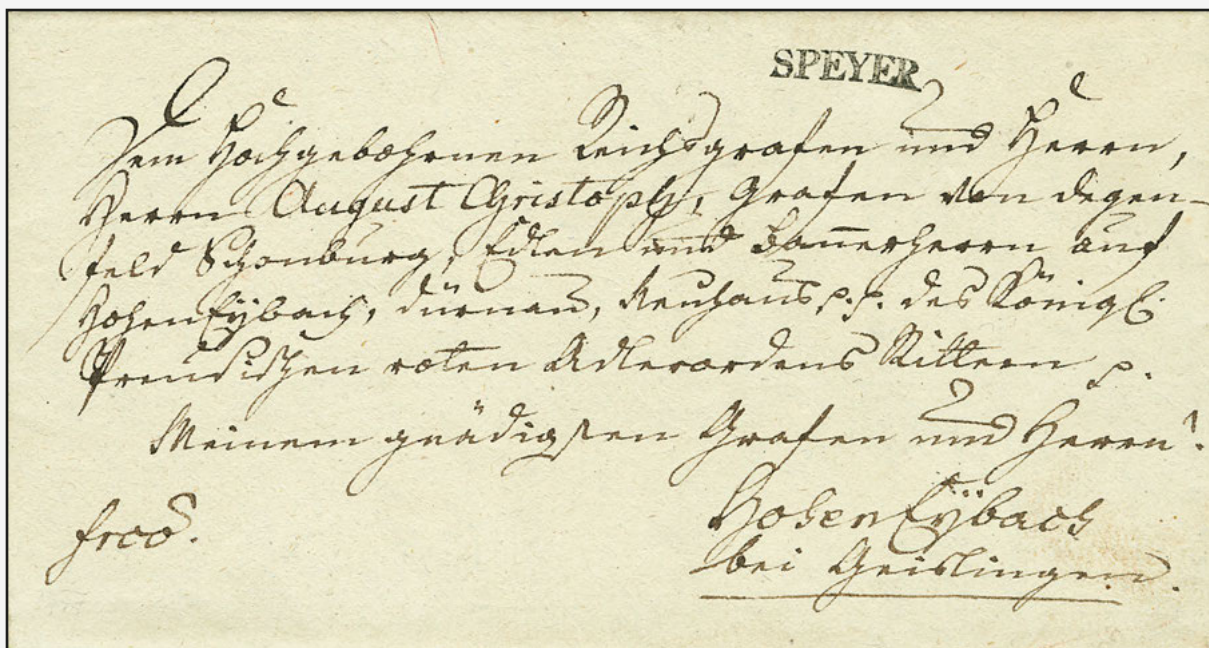 SPEYER
Dem Hochgebohrnen Reichsgrafen und Herrn,
Herrn August Christoph, Grafen von Degen-
feld Schonburg, Edlen und Bannerherrn auf
HohenEÿbach, Dürnau, Neuhaus p. p. des Königl.
Preusischen roten Adlerordens Rittern p.
Meinem gnädigsten Grafen und Herrn.
frco.
HohenEÿbach
bei Geislingen.